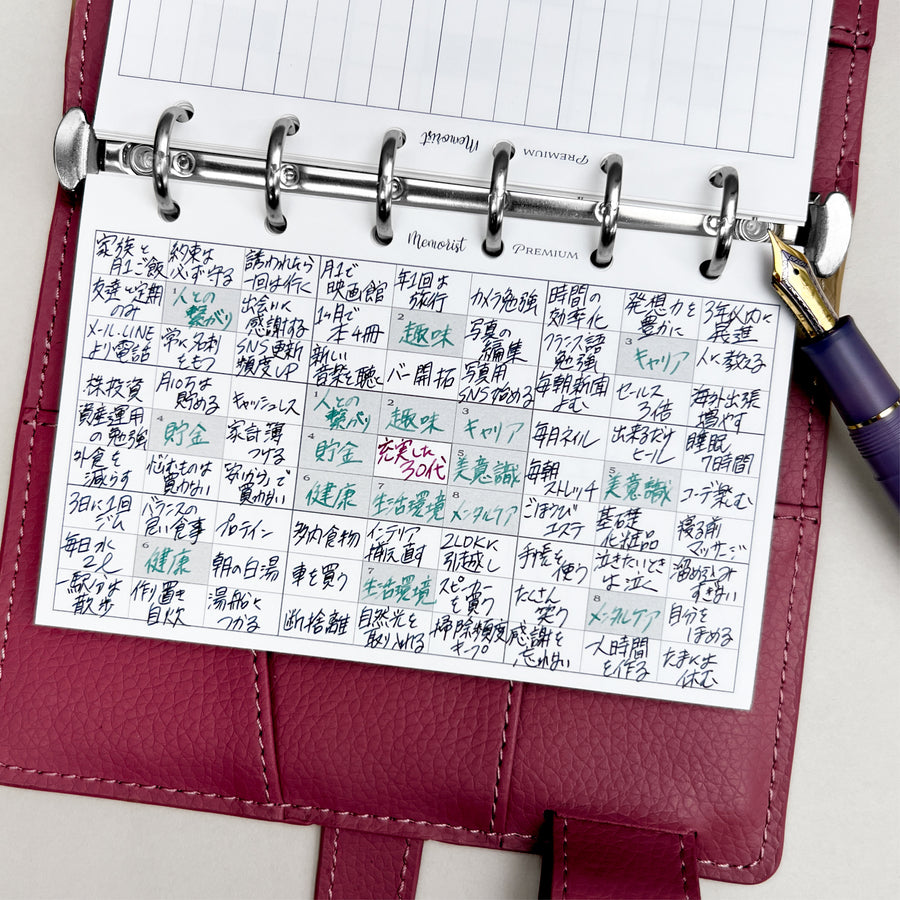 PREMIUM
Memorist
Memorist
PREMIUM
家族と
月1ご飯
約束は
必ず守る
誘われたら
一回は行く
月1で
映画館
年1回は
旅行
カメラ勉強
時間の
効率化
発想力を
豊かに
3年以内に
昇進
友達と定期
のみ
1 人との
繋がり
出会いに
感謝する
1ヶ月で
本4冊
2 趣味
写真の
編集
フランス語
勉強
3 キャリア
人に教える
メール、LINE
より電話
常に名刺
をもつ
SNS更新
頻度UP
新しい
音楽を聴く
バー開拓
写真用
SNS始める
毎朝新聞
よむ
セールス
3倍
海外出張
増やす
株投資
月10万は
貯める
キャッシュレス
1 人との
繋がり
2 趣味
3 キャリア
毎月ネイル
出来るだけ
ヒール
睡眠
7時間
資産運用
の勉強
4 貯金
家計簿
つける
4 貯金
充実した
30代
5 美意識
毎朝
ストレッチ
5 美意識
コーデ楽む
外食を
減らす
悩むものは
買わない
で
買わない
6 健康
7 生活環境
8 メンタルケア
ごほうび
エステ
基礎
化粧品
寝る前
マッサージ
3日に1回
ジム
バランスの
良い食事
プロテイン
多肉食物
インテリア
揃え直す
2LDKに
引越し
手帳を
使う
泣きたいとき
は泣く
溜め込み
すぎない
毎日水
2L
6 健康
朝の白湯
車を買う
7 生活環境
スピーカー
を買う
たくさん
笑う
8 メンタルケア
自分を
ほめる
一駅分は
散歩
作り置き
自炊
湯船に
つかる
断捨離
自然光を
取り入れる
掃除頻度
キープ
感謝を
忘れない
一人時間
を作る
たまには
休む